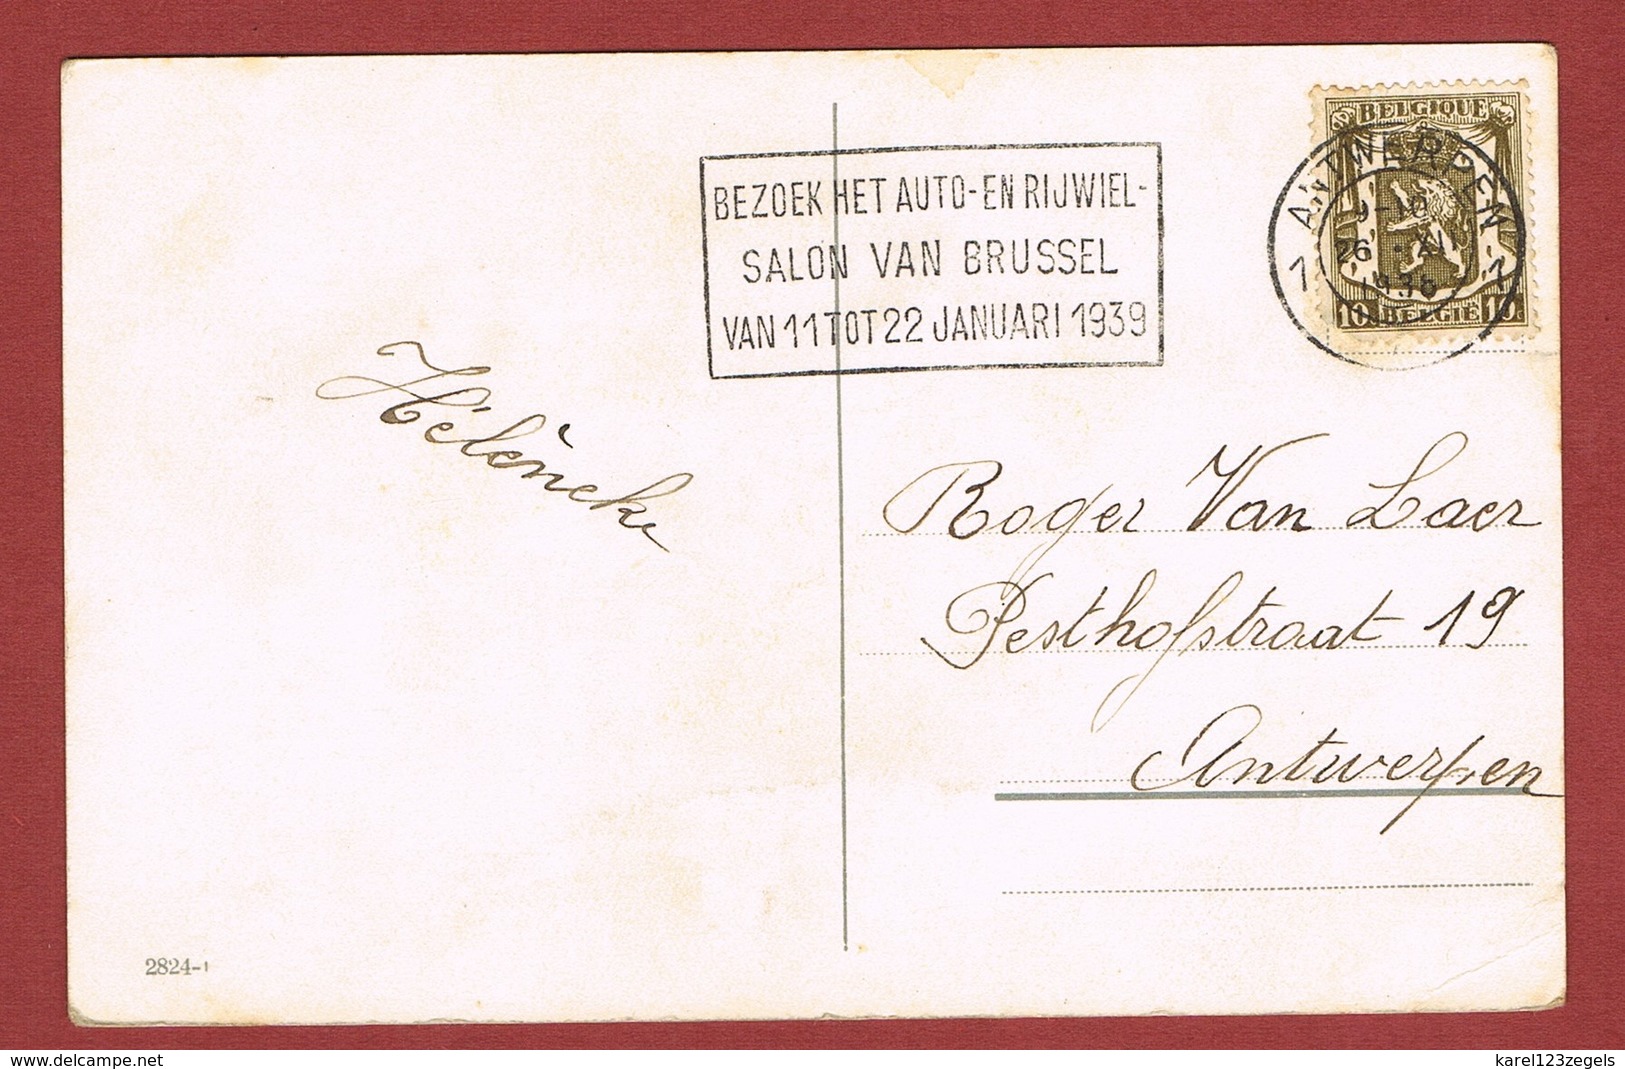 BELGIQUE
ANTWERPEN
26 XII
1938
1 1
10 BELGIË 10
BEZOEK HET AUTO-EN RIJWIEL-
SALON VAN BRUSSEL
VAN 11 TOT 22 JANUARI 1939
Hélèneke
Roger Van Laer
Pesthofstraat 19
Antwerpen
2824-1
www.delcampe.net
karel123zegels